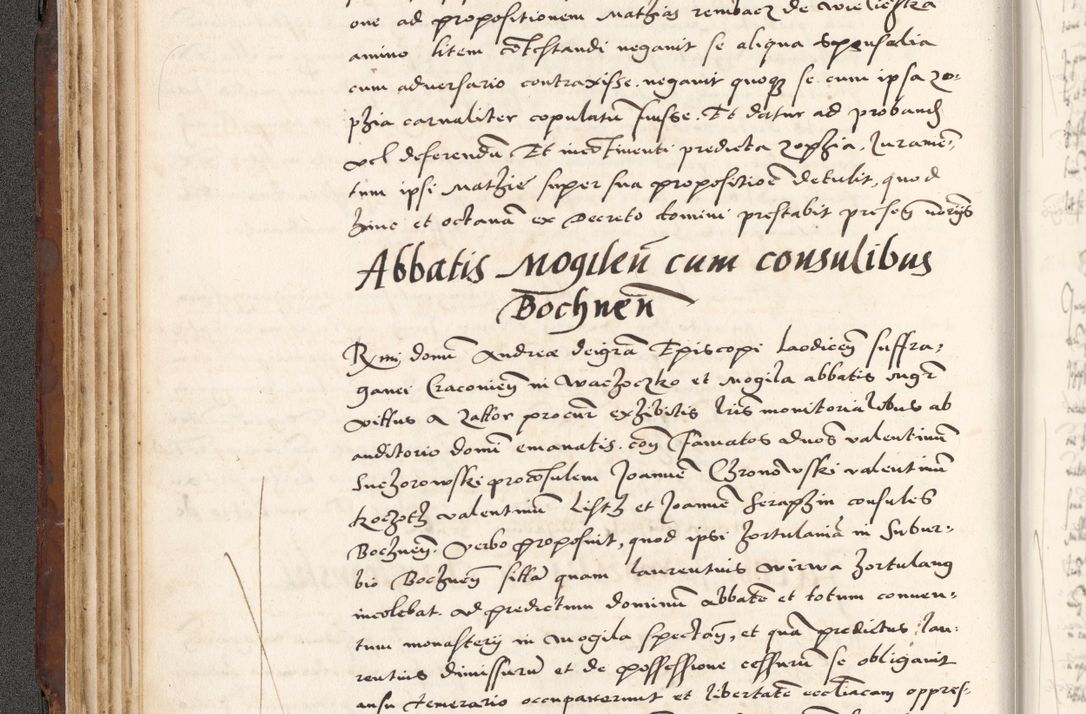 one ad propositionem Mathias rembacz de Wieliczka
animo litem cõtestandi negavit se aliqua sponsalia
cum adversario contraxisse. negavit quoqȝ se cum ipsa zo-
phia carnaliter copulatũ fuisse. Et datur ad proband
vel deferendũ Et incõtinenti predicta zophia, Juramẽ-
tum ipsi Mathie super sua propositiõe detulit, quod
hinc et octavã ex Decreto domini prestabit presen
Abbatis Mogileñ cum consulibus
Bochneñ
Rmi domĩ Andreæ dei grã Episcopi laodiceñ suffra-
ganei Cracovieñ in Wachoczko et Mogila abbatis Mgr̃
vitus a procur̃ exhibitis lr̃is monitorialibus ab
auditorio domĩ emanatis. con Famatos dnos valentinũ
Suchorowski procõsulem Joannẽ Chronowski valentinũ
valentinũ et Joannẽ Seraphin consules
Bochneñ. Verbo proposuit, quod ipsi hortulaniã in Subur-
bio Bochneñ sittã quam laurentius wirwa hortulans
incolebat. ad predictum dominũ Abbatẽ et totum conven-
tum monasterij in Mogila spectañ, et quã predictus lau-
rentius dimissurũ et de possessione cessurũ se obligavit
ausu temerario occupaverunt et libertatẽ eccl̃iacam oppres-